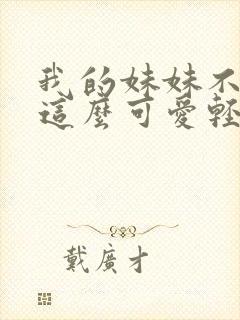 我的妹妹不
這麼可愛輕
戴廣才